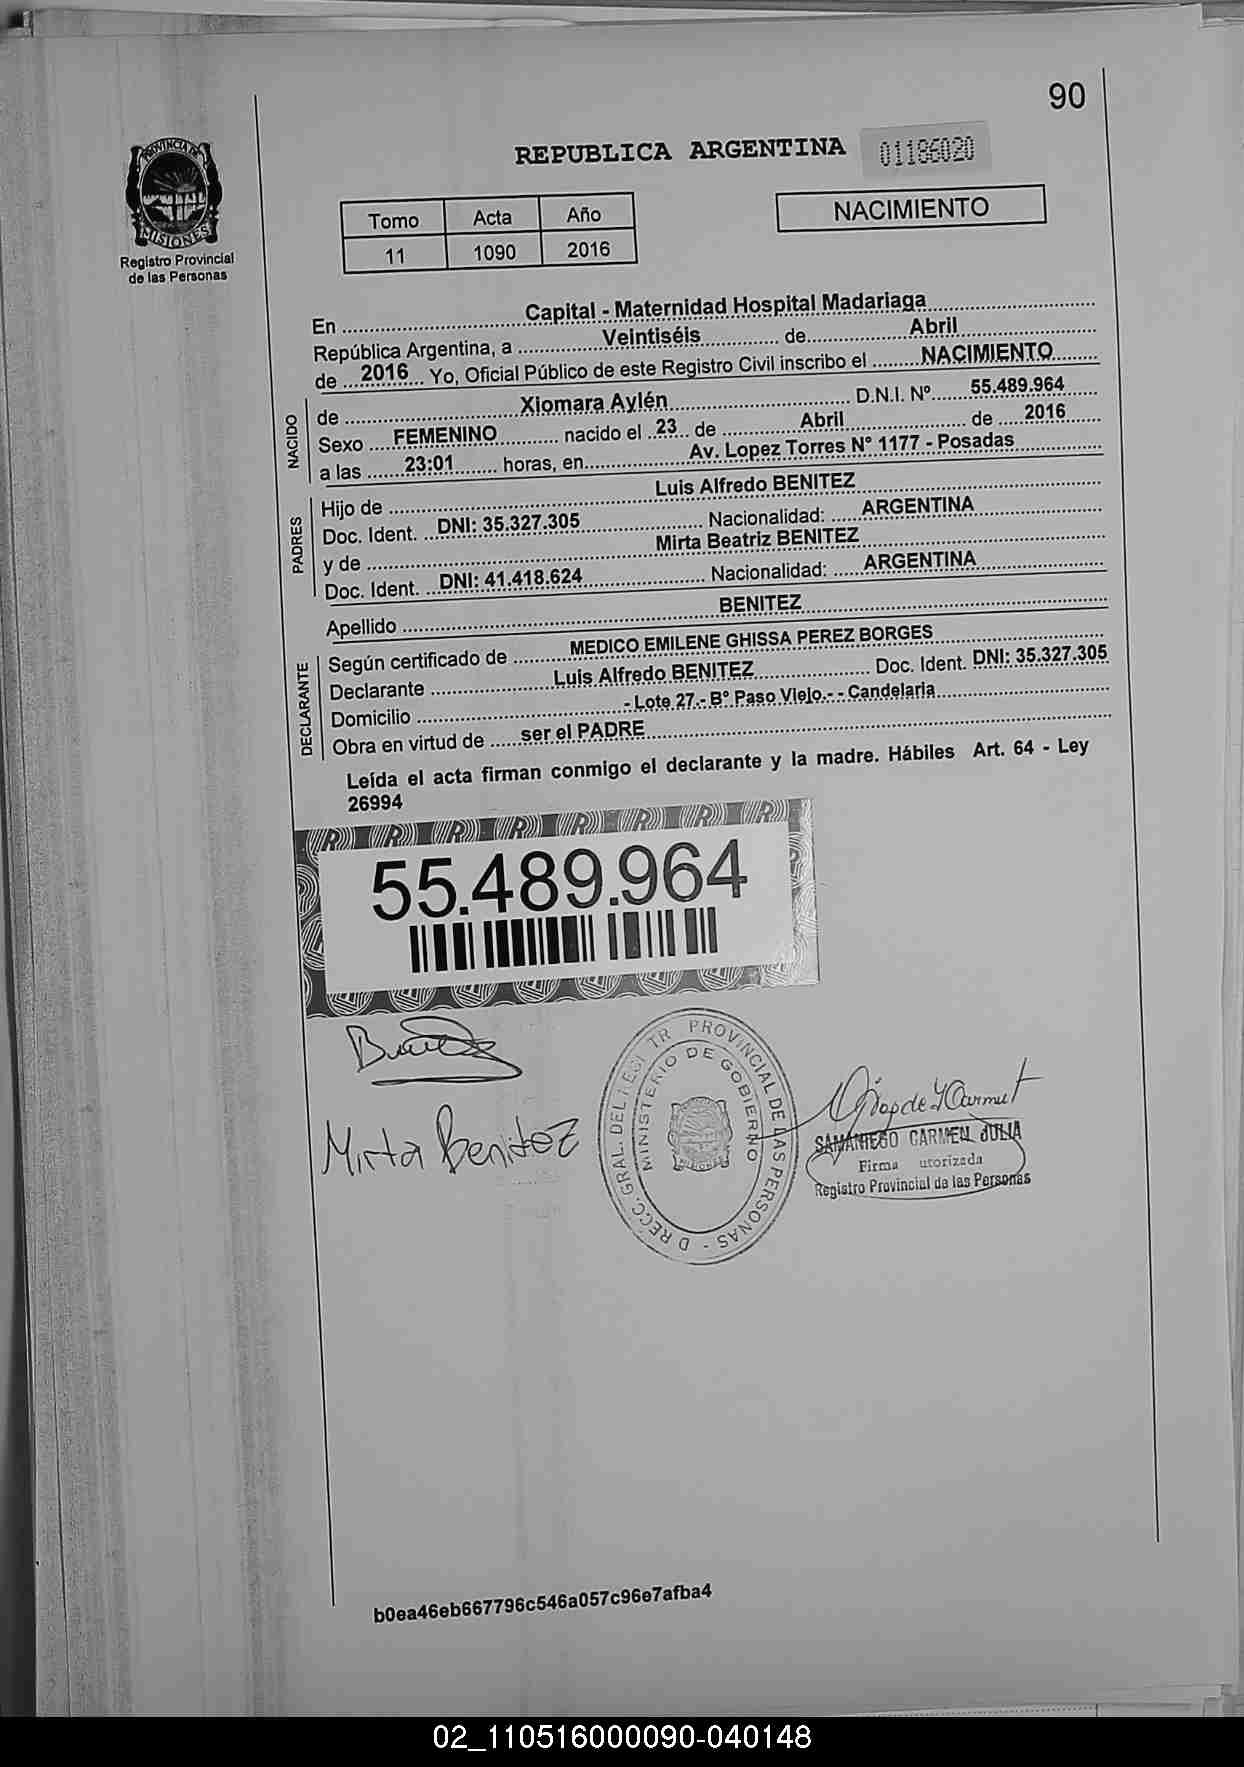 90
PROVINCIA DE
MISIONES
Registro Provincial
de las Personas
REPUBLICA ARGENTINA 01186020
Tomo Acta Año
11 1090 2016
NACIMIENTO
En Capital - Maternidad Hospital Madariaga
República Argentina, a Veintiséis de Abril
de 2016 Yo, Oficial Público de este Registro Civil inscribo el NACIMIENTO
NACIDO
de Xiomara Aylén D.N.I. Nº 55.489.964
Sexo FEMENINO nacido el 23 de Abril de 2016
a las 23:01 horas, en Av. Lopez Torres N° 1177 - Posadas
PADRES
Hijo de Luis Alfredo BENITEZ
Doc. Ident. DNI: 35.327.305 Nacionalidad: ARGENTINA
y de Mirta Beatriz BENITEZ
Doc. Ident. DNI: 41.418.624 Nacionalidad: ARGENTINA
Apellido BENITEZ
DECLARANTE
Según certificado de MEDICO EMILENE GHISSA PEREZ BORGES
Declarante Luis Alfredo BENITEZ Doc. Ident. DNI: 35.327.305
Domicilio - Lote 27.- B° Paso Viejo.- - Candelaria
Obra en virtud de ser el PADRE
Leída el acta firman conmigo el declarante y la madre. Hábiles Art. 64 - Ley
26994
55.489.964
Mirta Benitez
PROVINCIAL DE LAS PERSONAS
MINISTERIO DE GOBIERNO
SAMANIEGO CARMEN JULIA
Firma utorizada
Registro Provincial de las Personas
b0ea46eb667796c546a057c96e7afba4
02_110516000090-040148